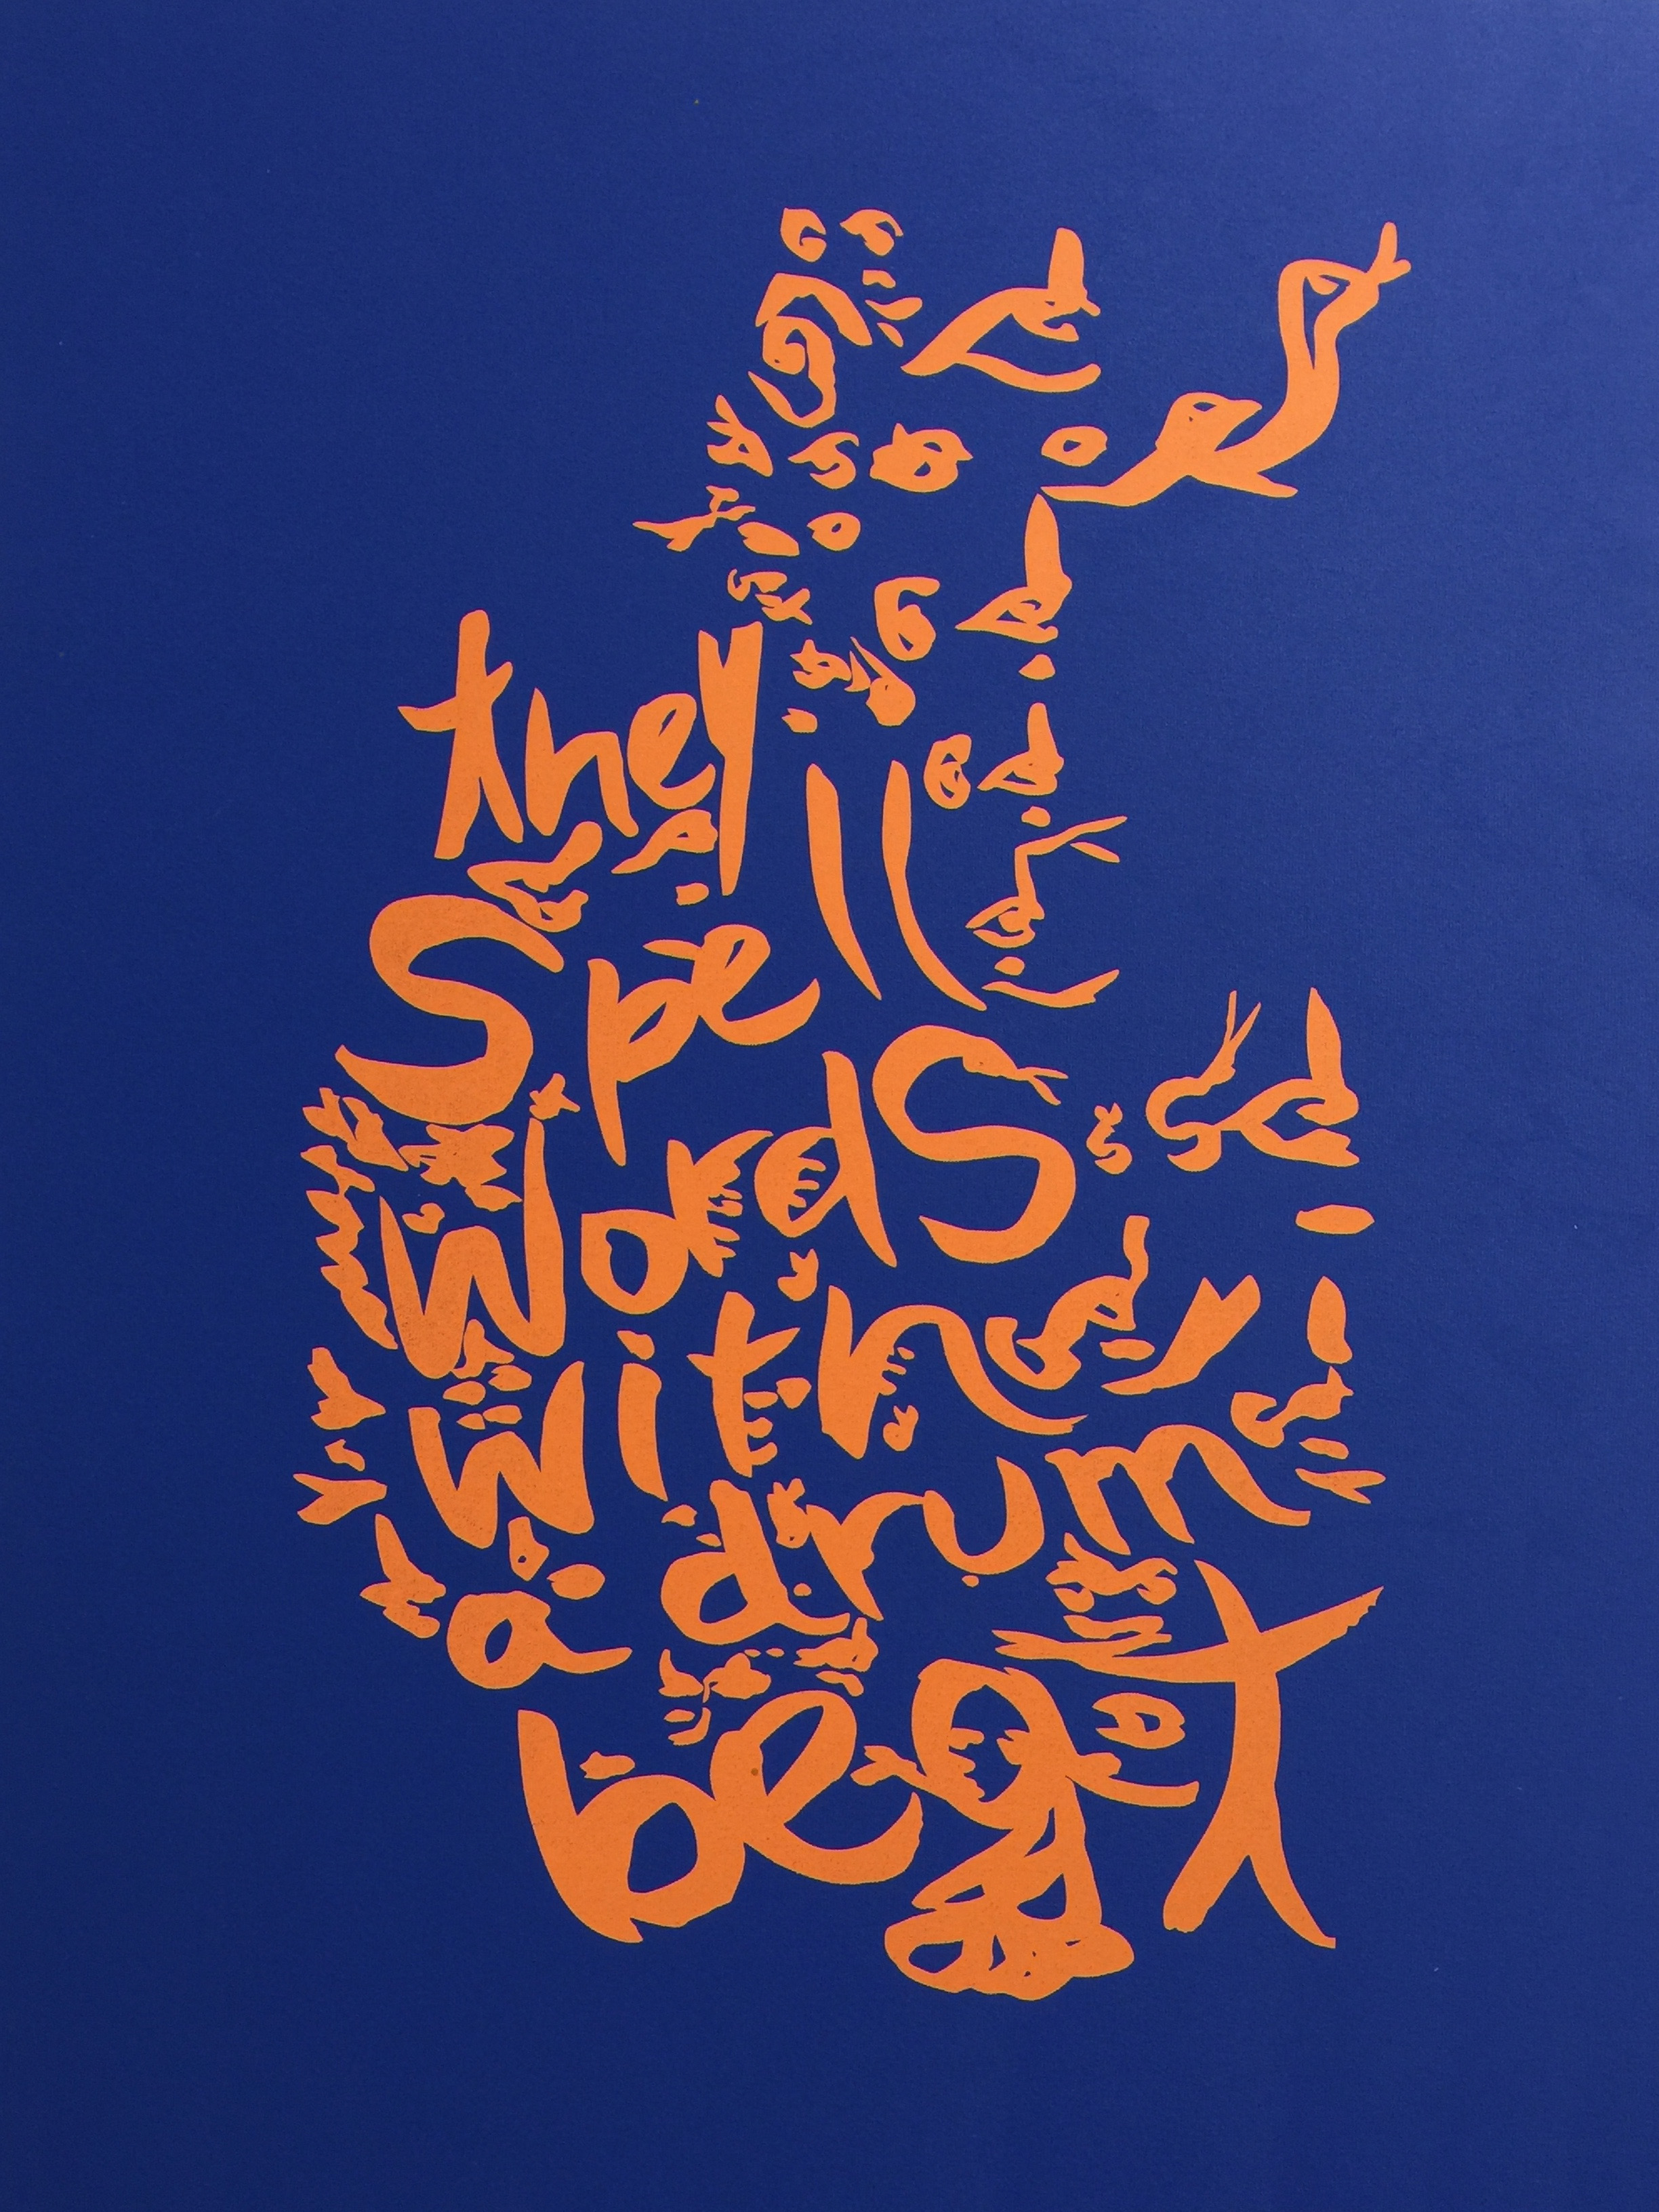 they
Spell
words
with
a drum
beat